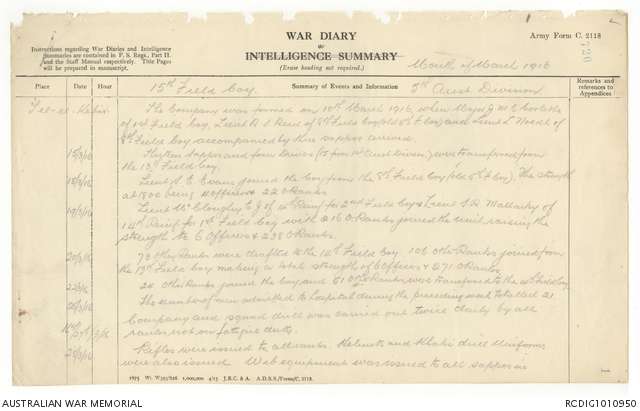 WAR DIARY
or
INTELLIGENCE SUMMARY
(Erase heading not required.)
Army Form C. 2118
Instructions regarding War Diaries and Intelligence
Summaries are contained in F. S. Regs., Part II.
and the Staff Manual respectively. Title Pages
will be prepared in manuscript.
720
Month of March 1916
Place
Date
Hour
15th Field Coy.
Summary of Events and Information
5th Aust Division
Remarks and
references to
Appendices
Tel-el-Kebir
The Company was formed on 10th March 1916, when Major J M E
of 1st Field Coy, Lieut R J Reid of 8th Field Coy and Lieut L
8th Field Coy accompanied by three sappers arrived.
15/3/16
Sixteen Sappers and four Drivers were transferred from
the 13th Field Coy.
18/3/16
Lieut H E Evans joined the Coy from the 8th Field Coy. The strength
at 1800 being 4 Officers & 22 O Ranks
19/3/16
Lieut McCloughry E J of 2nd Field Coy & Lieut
14th 1st Field Coy with 216 O Ranks joined the Unit raising the
strength to 6 Officers & 238 O Ranks.
20/3/16
73 Other Ranks were drafted to the 14th Field Coy. 106 Other Ranks joined from
the 13th Field Coy making a total strength of 6 Officers & 271 O Ranks.
22/3/16
24 Other Ranks joined the Coy and 51 Other Ranks were transferred to the
26/3/16
The number of men admitted to hospital during the preceding week totalled 21
Company and squad drill was carried out twice daily by all
ranks not on fatigue duty.
25/3/16
Rifles were issued to all ranks. Helmets and Khaki drill Uniforms
were also issued. Web equipment was issued to all sappers on
1875 Wt. W593/826 1,000,000 4/15 J.B.C. & A. A.D.S.S./Forms/C. 2118.
AUSTRALIAN WAR MEMORIAL
RCDIG1010950